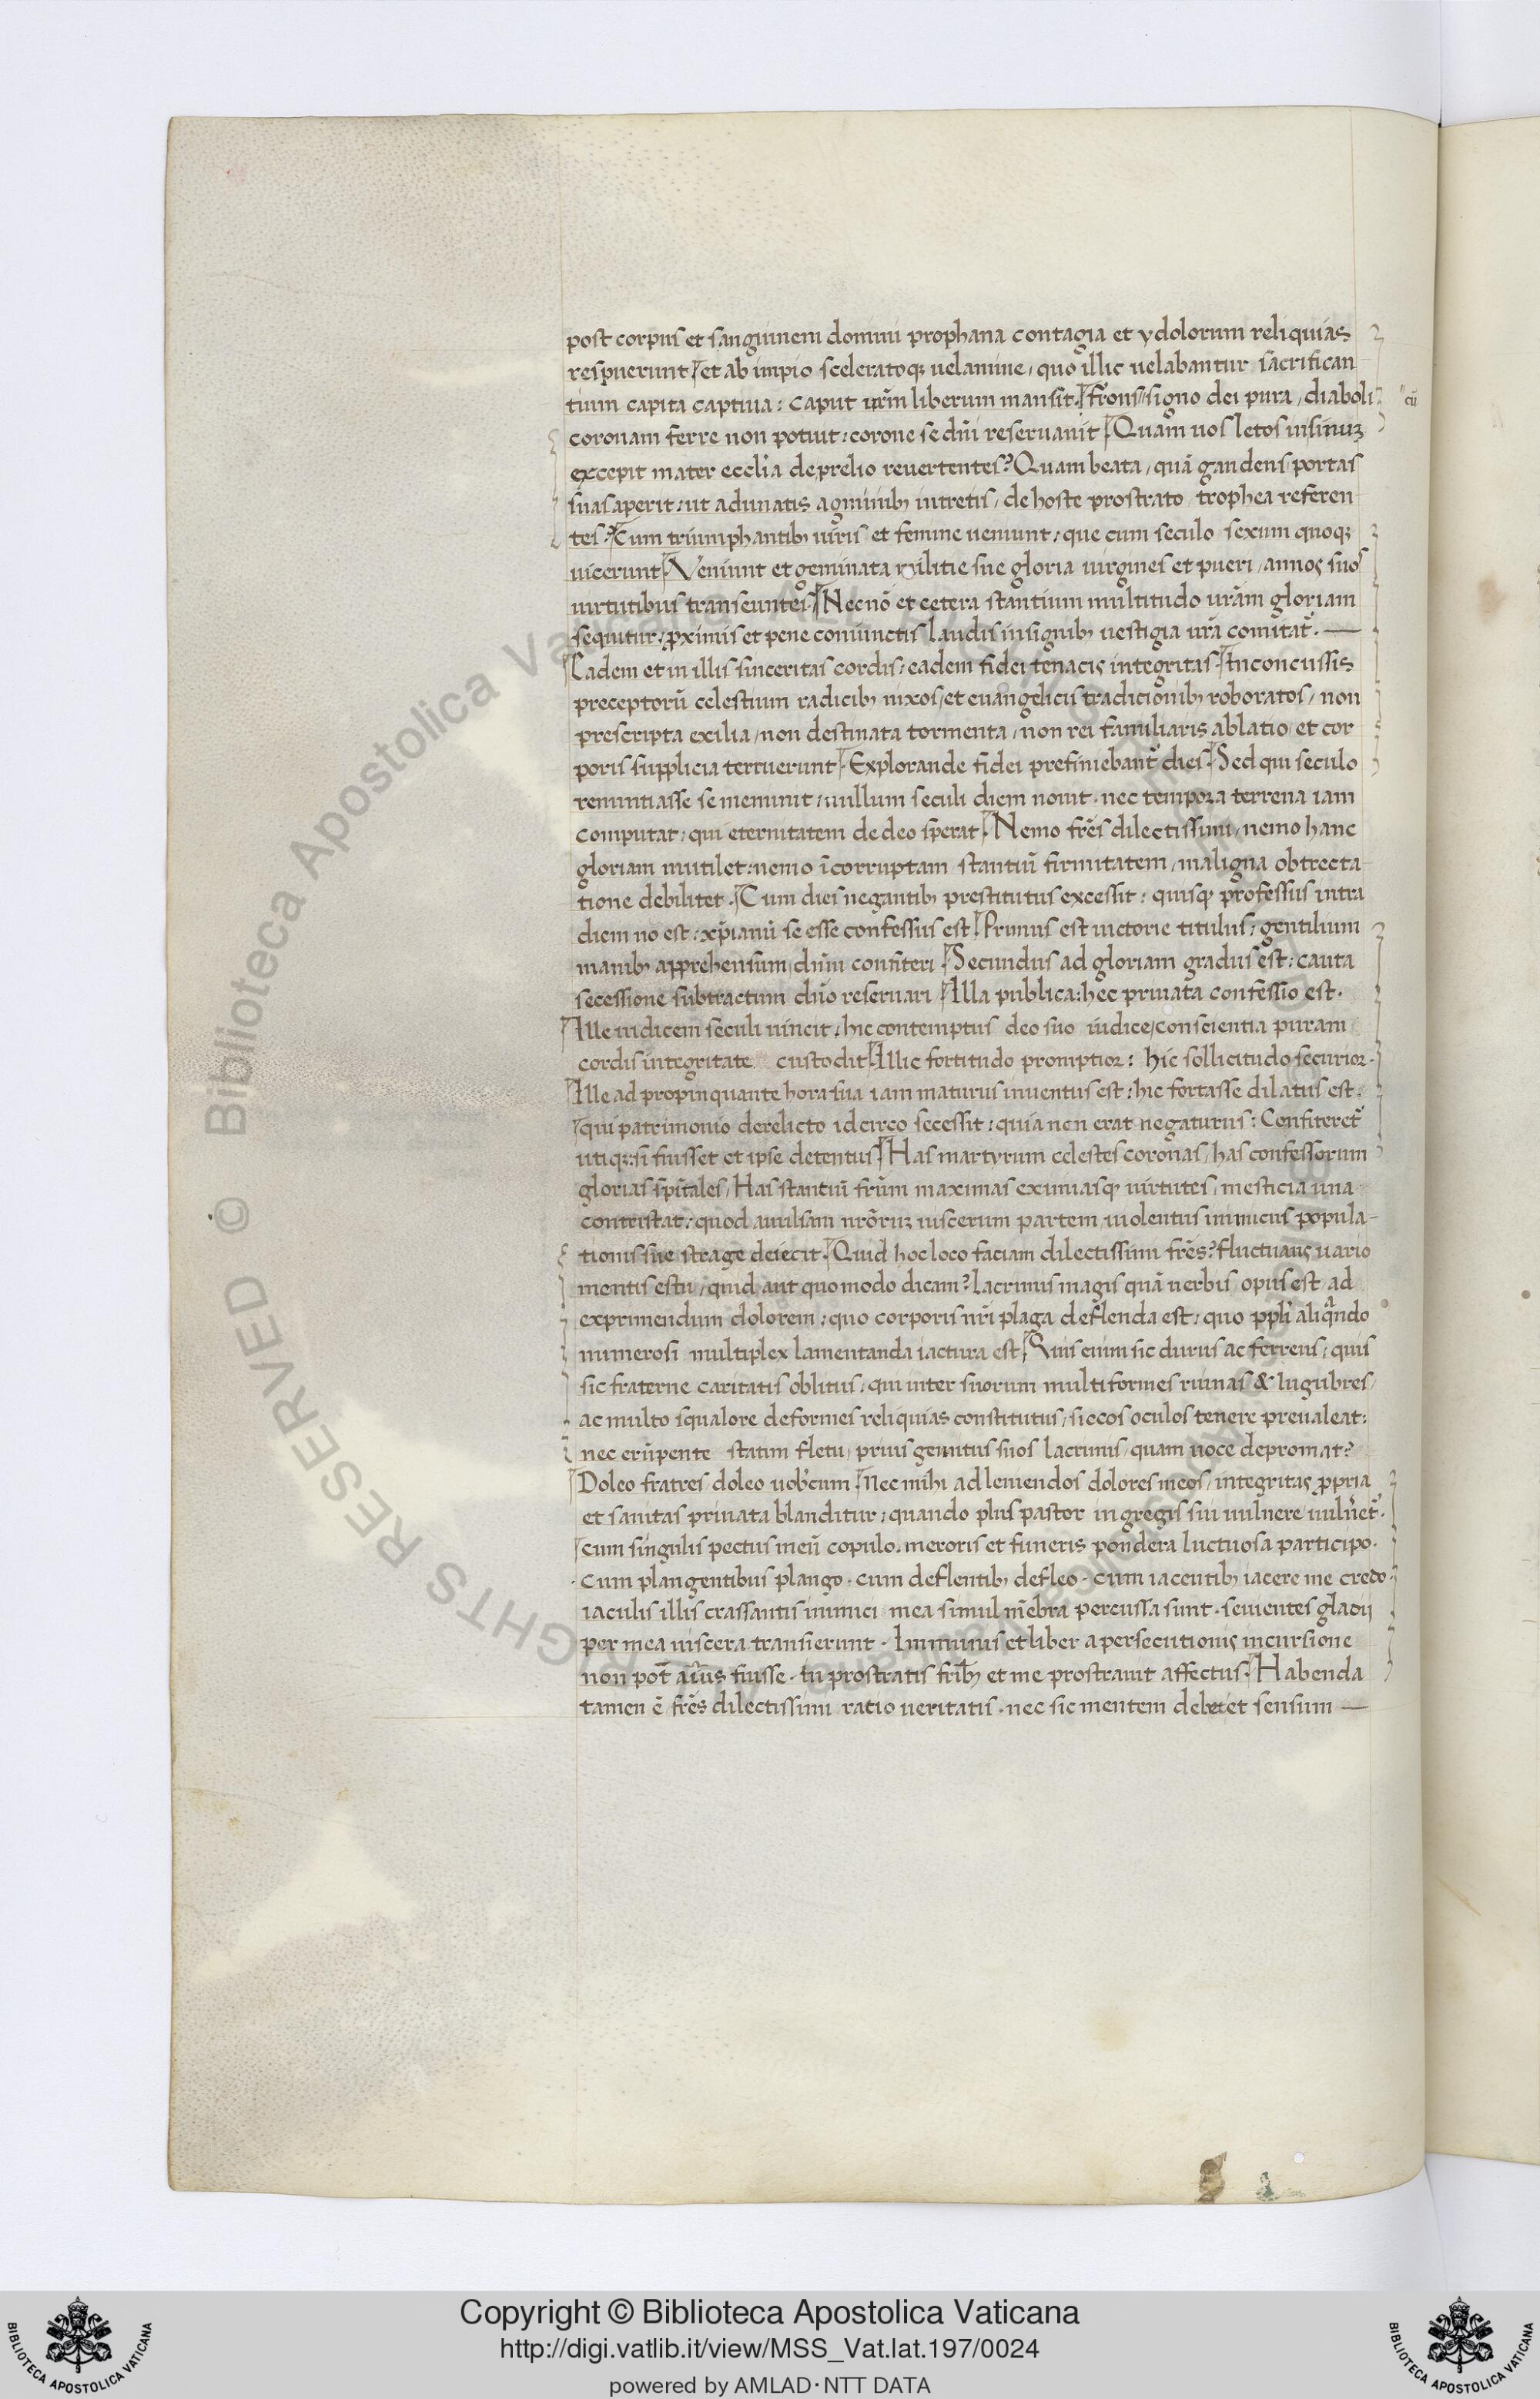 post corpus et sanguinem domini prophana contagia et ydolorum reliquias
respuerunt et ab impio sceleratoqꝫ uelamine, quo illic uelabantur sacrifican
tium capita captiua: caput ur̄m liberum mansit. frons signo dei pura, diaboli
cū
coronam ferre non potuit: corone se dn̄i reseruauit. Quam uos letos insinuꝫ
excepit mater eccl̄ia de prelio reuertentes? Quam beata, quā gaudens portas
suas aperit: ut adunatis agminibꝫ intretis, de hoste prostrato trophea referen
tes? Cum triumphantibꝫ uiris et femine ueniunt: que cum seculo sexum quoqꝫ
uicerunt. Veniunt et geminata militie sue gloria uirgines et pueri, annos suos
uirtutibus transeuntes. Necnō et cetera stantium multitudo ur̄am gloriam
sequitur: ꝓximis et pene coniunctis laudis insignibꝫ uestigia ur̄a comitat̄. —
Eadem et in illis sinceritas cordis: eadem fidei tenacis integritas. Inconcussis
preceptorū celestium radicibꝫ nixos, et euangelicis tradicionibꝫ roboratos, non
prescripta exilia, non destinata tormenta, non rei familiaris ablatio et cor
poris supplicia terruerunt. Explorande fidei prefiniebant̄ dies. Sed qui seculo
renuntiasse se meminit: nullum seculi diem nouit. nec tempora terrena iam
computat: qui eternitatem de deo sperat. Nemo fr̄es dilectissimi, nemo hanc
gloriam mutilet: nemo īcorruptam stantiū firmitatem, maligna obtrecta
tione debilitet. Cum dies negantibꝫ prestitutus excessit: quisqꝫ professus intra
diem no est: xp̄ianū se esse confessus est. Primus est uictorie titulus: gentilium
manibꝫ apprehensum dn̄m confiteri. Secundus ad gloriam gradus est: cauta
secessione subtractum dn̄o reseruari. Illa publica: hec priuata confessio est.
Ille iudicem seculi uincit: hic contemptus deo suo iudice, conscientia puram
cordis integritate custodit. Illic fortitudo promptior: hic sollicitudo securior.
Ille ad propinquante hora sua iam maturus inuentus est: hic fortasse dilatus est.
qui patrimonio derelicto idcirco secessit: quia non erat negaturus: Confiteret̄
utiqꝫ: si fuisset et ipse detentus. Has martyrum celestes coronas, has confessorum
glorias sp̄itales, Has stantiū fr̄um maximas eximiasqꝫ uirtutes, mesticia una
contristat: quod auulsam nr̄oruꝫ uiscerum partem uiolentus inimicus popula-
tionis sue strage deiecit. Quid hoc loco faciam dilectissimi fr̄es? fluctuans uario
mentis estu, quid aut quomodo dicam? lacrimis magis quā uerbis opus est ad
exprimendum dolorem: quo corporis nr̄i plaga deflenda est: quo pp̄li aliqͣndo
numerosi multiplex lamentanda iactura est. Quis enim sic durus ac ferreus: quis
sic fraterne caritatis oblitus: qui inter suorum multiformes ruinas & lugubres,
ac multo squalore deformes reliquias constitutus, siccos oculos tenere preualeat:
nec erūpente statim fletu, prius gemitus suos lacrimis, quam uoce depromat?
Doleo fratres doleo uob̄cum. Nec mihi ad leniendos dolores meos, integritas ꝓpria
et sanitas priuata blanditur: quando plus pastor in gregis sui uulnere uuln̄et̄.
cum singulis pectus meū copulo. meroris et funeris pondera luctuosa participo.
cum plangentibus plango. cum deflentibꝫ defleo. cum iacentibꝫ iacere me credo.
iaculis illis crassantis inimici mea simul mēbra percussa sunt. seuientes gladij
per mea uiscera transierunt. Immunis et liber a persecutionis incursione
non pot̄ aīus fuisse. in prostratis fr̄ibꝫ et me prostrauit affectus. Habenda
tamen ē fr̄es dilectissimi ratio ueritatis. nec sic mentem debet et sensum —
Copyright © Biblioteca Apostolica Vaticana
http://digi.vatlib.it/view/MSS_Vat.lat.197/0024
powered by AMLAD·NTT DATA
BIBLIOTECA APOSTOLICA VATICANA
BIBLIOTECA APOSTOLICA VATICANA